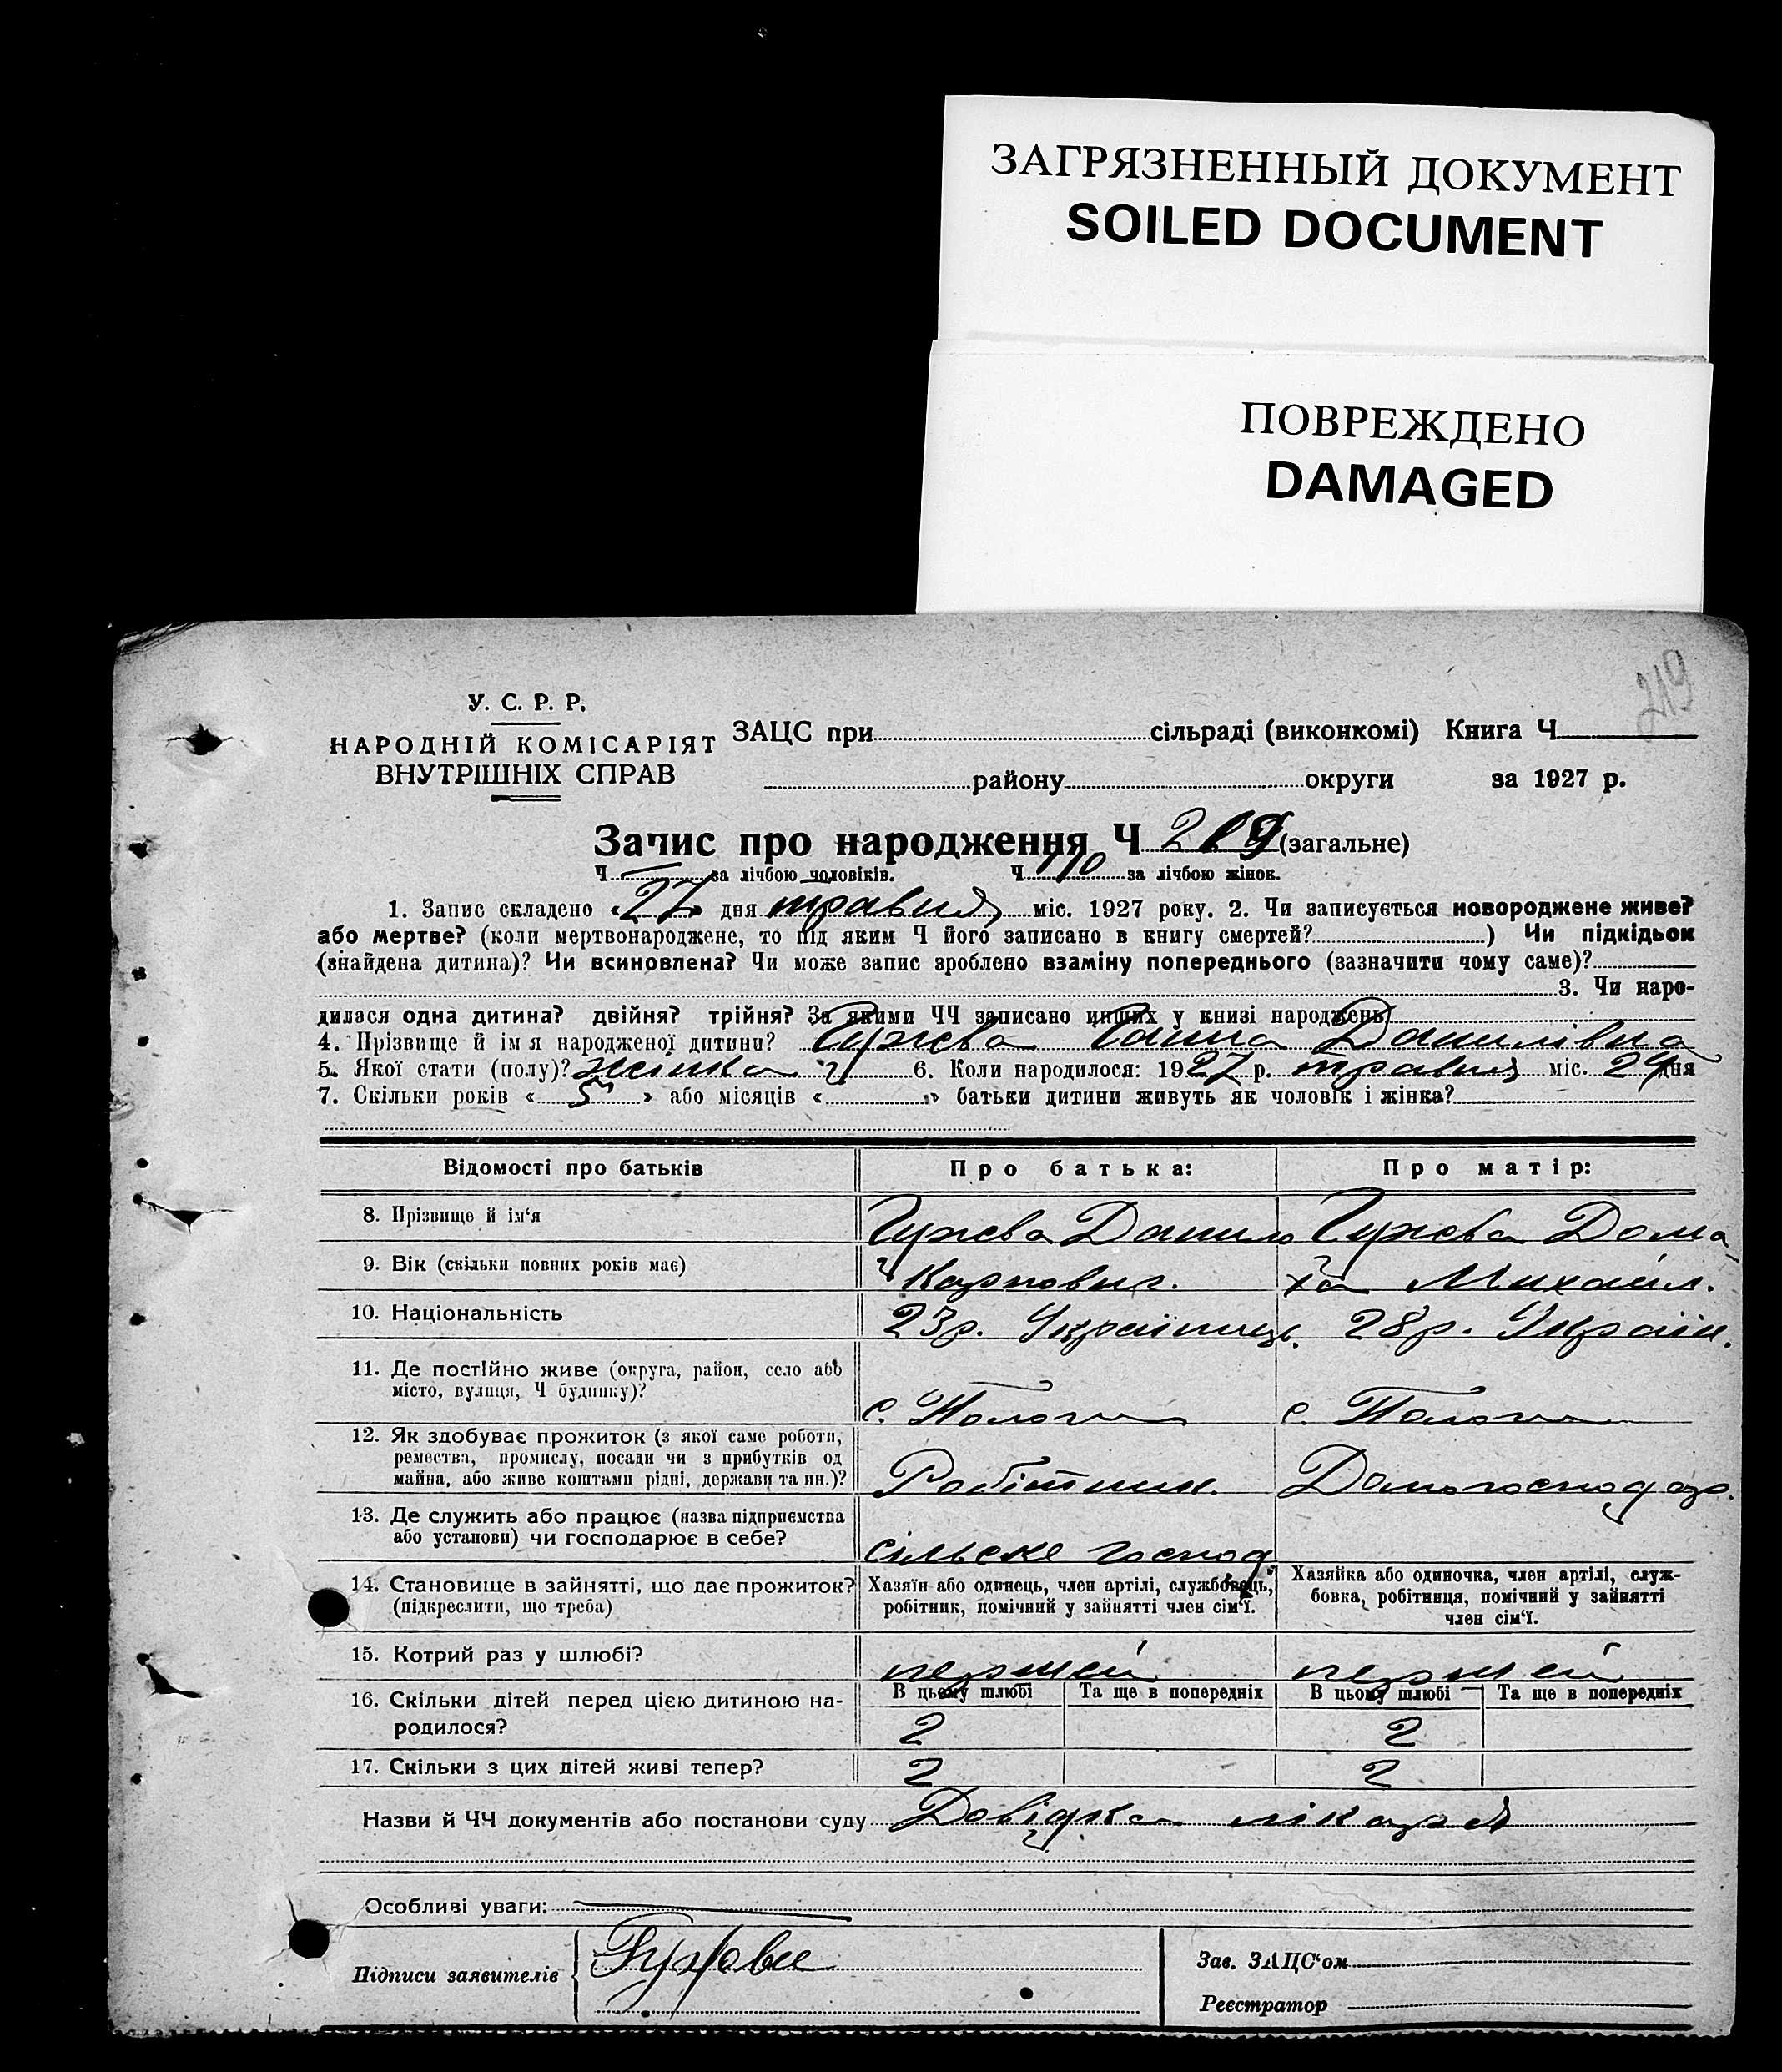 ЗАГРЯЗНЕННЫЙ ДОКУМЕНТ
SOILED DOCUMENT
ПОВРЕЖДЕНО
DAMAGED
219
У. С. Р. Р.
НАРОДНІЙ КОМІСАРІЯТ
ВНУТРІШНІХ СПРАВ
ЗАЦС при сільраді (виконкомі) Книга Ч
району округи за 1927 р.
Запис про народження Ч 219 (загальне)
Ч за лічбою чоловіків. Ч 110 за лічбою жінок.
1. Запис складено «27» дня травня міс. 1927 року. 2. Чи записується новороджене живе?
або мертве? (коли мертвонароджене, то під яким Ч його записано в книгу смертей? ) Чи підкідьок
(знайдена дитина)? Чи всиновлена? Чи може запис зроблено взаміну попереднього (зазначити чому саме)?
3. Чи наро-
дилася одна дитина? двійня? трійня? За якими ЧЧ записано инших у книзі народжень
4. Прізвище й ім я народженої дитини? Гужва Ганна Данилівна
5. Якої стати (полу)? жінка 6. Коли народилося: 1927 р. травня міс. 24 дня
7. Скільки років « 5 » або місяців « » батьки дитини живуть як чоловік і жінка?
Відомості про батьків Про батька: Про матір:
8. Прізвище й ім‘я Гужва Данило Гужва Дома
9. Вік (скільки повних років має) Карпович. ха Михайл.
10. Національність 23р. Українець. 28р. Україн.
11. Де постійно живе (округа, район, село або
місто, вулиця, Ч будинку)? с. Пологи с. Пологи
12. Як здобуває прожиток (з якої саме роботи,
ремества, промислу, посади чи з прибутків од
майна, або живе коштами рідні, держави та ин.)? Робітник. Домогосподар.
13. Де служить або працює (назва підприємства
або установи) чи господарює в себе? сільске господ
14. Становище в зайнятті, що дає прожиток? Хазяїн або одинець, член артілі, службовець, Хазяйка або одиночка, член артілі, служ-
(підкреслити, що треба) робітник, помічний у зайнятті член сім‘ї. бовка, робітниця, помічний у зайнятті
член сім‘ї.
15. Котрий раз у шлюбі? першей першей
16. Скільки дітей перед цією дитиною на- В цьому шлюбі Та ще в попередніх В цьому шлюбі Та ще в попередніх
родилося? 2 2
17. Скільки з цих дітей живі тепер? 2 2
Назви й ЧЧ документів або постанови суду Довідка лікаря
Особливі уваги:
Підписи заявителів
Зав. ЗАЦС‘ом
Реєстратор